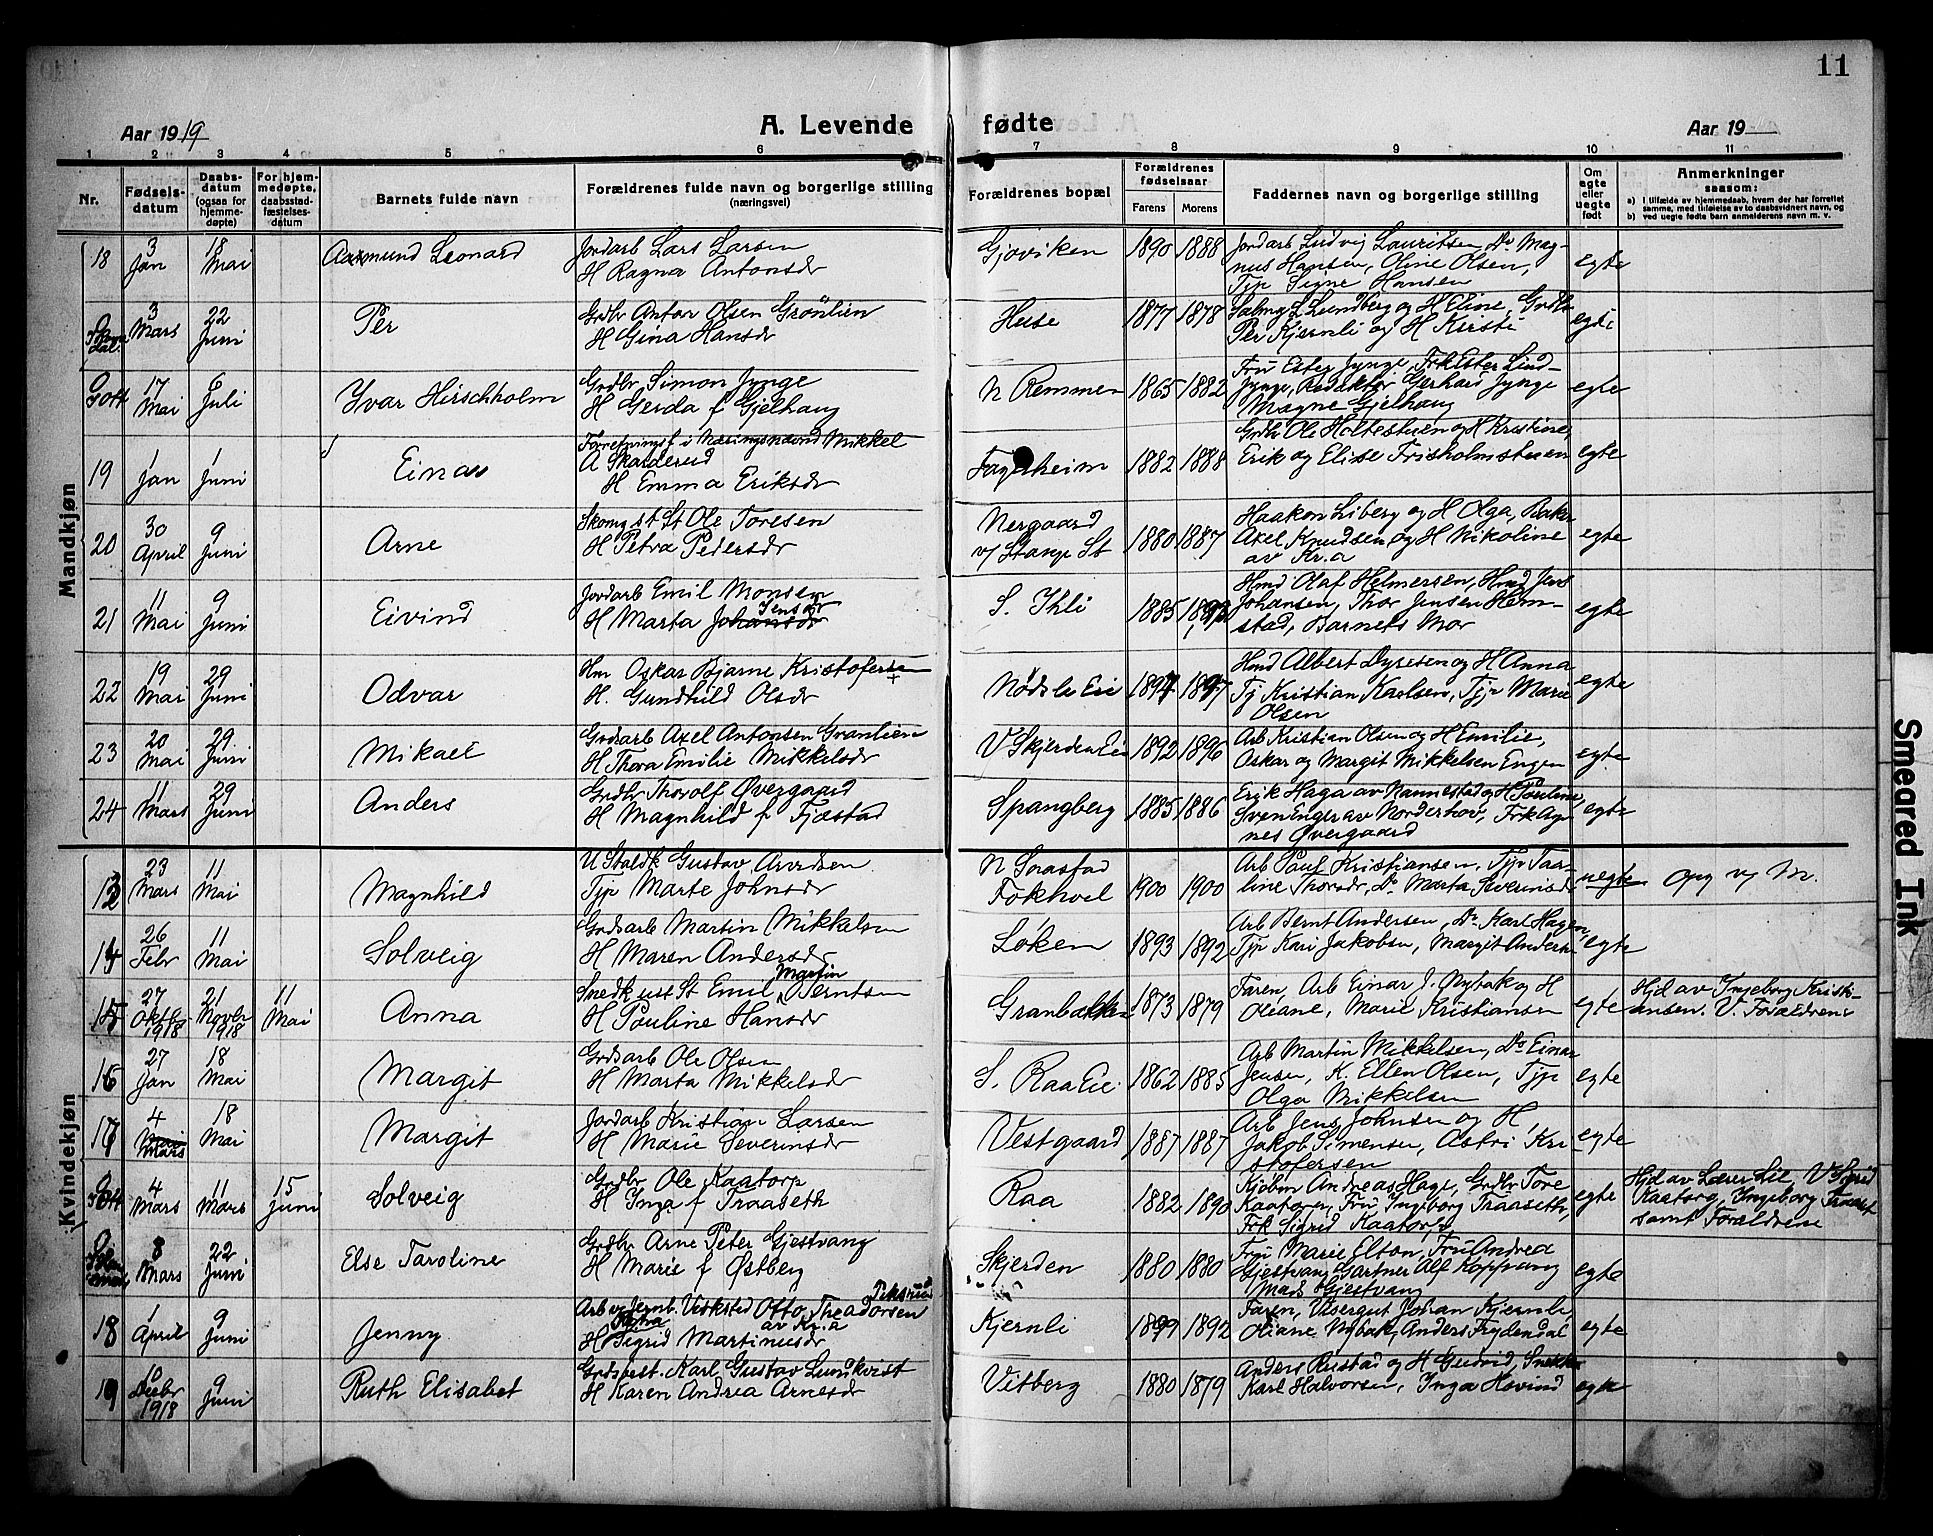 11
Aar 1919
A. Levende fødte
Aar 19
1 2 3 4 5 6 7 8 9 10 11
Nr.
Fødsels-
datum
Daabs-
datum
(ogsaa for
hjemme-
døpte)
For hjem-
medøpte,
daabsstad-
fæstelses-
datum
Barnets fulde navn
Forældrenes fulde navn og borgerlige stilling
(næringsvei)
Forældrenes bopæl
Forældrenes
fødselsaar
Farens Morens
Faddernes navn og borgerlige stilling
Om
egte
eller
uegte
født
Anmerkninger
saasom:
a) I tilfælde av hjemmedaab, hvem der har forrettet
samme, med tilføielse av to daabsvidners navn, og
b) ved uegte fødte barn anmelderens navn m. v.
Mandkjøn
18 3 Jan 18 Mai Aasmund Leonard
Jordarb Lars Larsen
H Ragna Antonsdr
Gjøviken 1890 1888
Jordarb Ludvig Lauritsen, Do Mag-
nus Hansen, Oline Olsen,
Tjp Signe Hansen
egte
3 Mars 22 Juni Per
Grdbr Anton Olsen Grønlien
H Gina Hansdr
Heise 1877 1878
Salmg L Lundberg og H Eline, Grdbr
Per Kjernli og H Kirsti
egte
Gott 17 Mai 6 Juli Yvar Hirschholm
Grdbr Simon Jynge
H Gerda f Gjelhaug
N Remmen 1865 1882
Fru Ester Jynge, Frk Ester Lind-
Jynge, Redaktør Gerhard Jynge
Magne Gjelhaug
egte
19 1 Jan 1 Juni Einar
Forretningsf i Næringsnævnd Mikkel
A Skarderud
H Emma Eriksdr
Fagerheim 1882 1888
Grdbr Ole Holtestuen og H Kristine,
Erik og Elise Frisholmstuen
egte
20 30 April 9 Juni Arne
Skomg st St Ole Toresen
H Petra Pedersdr
Nergaard
v/ Stange St 1880 1887
Haakon Liberg og H Olga, Baker
Axel Knudsen og H Nikoline
av Kr.a
egte
21 11 Mai 9 Juni Eivind
Jordarb Emil Monsen
H Marta Johansdr Jensdr
S. Ihli 1885 1893
Hmd Olaf Helmersen, Hmd Jens
Johansen, Thor Jensen Hem-
stad, Barnets Mor
egte
22 19 Mai 29 Juni Odvar
Hm Oskar Bjarne Kristofersen
H. Gundhild Olsdr
Nødsle Eie 1897 1897
Hmd Albert Dyresen og H Anna
Tj Kristian Karlsen, Tjp Marie
Olsen
egte
23 20 Mai 29 Juni Mikael
Grdsarb Axel Antonsen Granlien
H Thora Emilie Mikkelsdr
V Skjerden Eie 1892 1896
Arb Kristian Olsen og H Emilie,
Oskar og Margit Mikkelsen Engen
egte
24 11 Mars 29 Juni Anders
Grdbr Thorolf Øvergaard
H Magnhild f Fjæstad
Spangberg 1885 1886
Erik Haga av Nannestad og H Pauline,
Svenenger av Norderhov, Frk Ag-
nes Øvergaard
egte
Kvindekjøn
13 23 Mars 11 Mai Magnhild
U Staldk Gustav Arvidsen
Tjp Marte Johnsdr
N Sørastad
Fokhvel 1900 1900
Arb Paul Kristiansen, Tjp Taar-
line Thorsdr, Do Marta Severinsdr
uegte Opg v/ M.
14 26 Febr 11 Mai Solveig
Grdsarb Martin Mikkelsen
H Maren Andersdr
Løken 1893 1892
Arb Bernt Andersen, Do Karl Hagen,
Tjp Kari Jakobsen, Margit Anders
egte
15 27 Oktbr 1918 21 Novbr 1918 11 Mai Anna
Snedk ust St Emil Martin Berntsen
H Pauline Hansdr
Granbakken 1873 1879
Faren, Arb Einar J. Nybak og H
Oleane, Marie Kristiansen
egte
Hjd av Ingeborg Kristi-
ansen. V. Forældrene
16 27 Jan 18 Mai Margit
Grdsarb Ole Olsen
H Marta Mikkelsdr
S. Raa Eie 1862 1885
Arb Martin Mikkelsen, Do Einar
Jensen, K. Ellen Olsen, Tjp
Olga Mikkelsen
egte
17 4 Mars 18 Mai Margit
Jordarb Kristian Larsen
H Marie Severinsdr
Vestgaard 1887 1887
Arb Jens Johnsen og H,
Jakob Simensen, Astri Kri-
stofersen
egte
Gott 4 Mars 11 Mars 15 Juni Solveig
Grdbr Ole Kaatorp
H Inga f Traaseth
Raa 1882 1890
Kjøbm Andreas Hage, Grdbr Tore
Kaatorp, Fru Ingeborg Traaseth,
Frk Sigrid Kaatorp
egte
Hjd av Lærer Lie, V Sigrid
Kaatorp, Ingeborg Traaset
samt Forældrene
8 Mars 22 Juni Else Taroline
Grdbr Arne Peter Gjestvang
H Marie f Østberg
Skjerden 1880 1880
Fru Marie Elton, Fru Andrea
Gjestvang, Gartner Alf Koppvang
Mads Gjestvang
egte
18 1 April 9 Juni Jenny
Arb v/ Jernb. Verksted Otto Theadorsen
av Kr.a
H Sigrid Martinusdr
Kjernli 1899 1892
Faren, Visergut Johan Kjernli,
Oliane Nybak, Anders Frydendal
egte
19 10 Decbr 1918 9 Juni Ruth Elisabet
Grdsbest. Karl Gustav Lundkvist
H Karen Andrea Arnesdr
Vitberg 1880 1879
Anders Rustad og H Gudrid, Snekker
Karl Halvorsen, Inga Hevind
egte
Smeared Ink